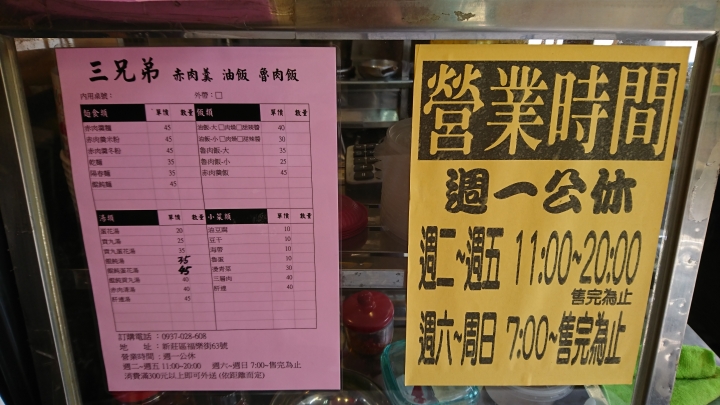 三兄弟 赤肉羹 油飯 魯肉飯
內用桌號： 外帶：□
麵食類 單價 數量 飯類 單價 數量
赤肉羹麵 45 油飯-大□肉燥□甜辣醬 40
赤肉羹米粉 45 油飯-小□肉燥□甜辣醬 30
赤肉羹冬粉 45 魯肉飯-大 35
乾麵 35 魯肉飯-小 25
陽春麵 35 赤肉羹飯 45
餛飩麵 45
湯類 單價 數量 小菜類 單價 數量
蛋花湯 20 油豆腐 10
貢丸湯 25 豆干 10
貢丸蛋花湯 35 海帶 10
餛飩湯 35 魯蛋 10
餛飩蛋花湯 45 燙青菜 30
餛飩貢丸湯 40 三層肉 40
赤肉羹湯 40 肝連 40
肝連湯 45
訂購電話：0937-028-608
地 址：新莊區福樂街63號
營業時間：週一公休
週二~週五 11:00~20:00 週六~週日 7:00~售完為止
消費滿300元以上即可外送 (依距離而定)
營業時間
週一公休
週二~週五 11:00~20:00
售完為止
週六~周日 7:00~售完為止